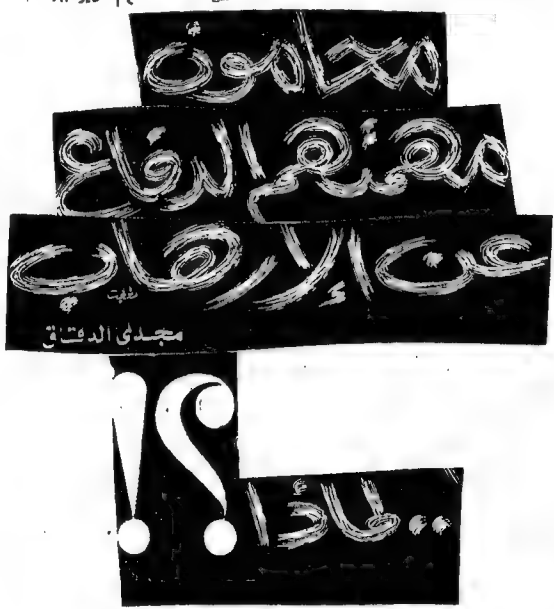 محامون
مهمتهم الدفاع
عن الإرهاب
مجدى الدقاق
.. لماذا ؟!